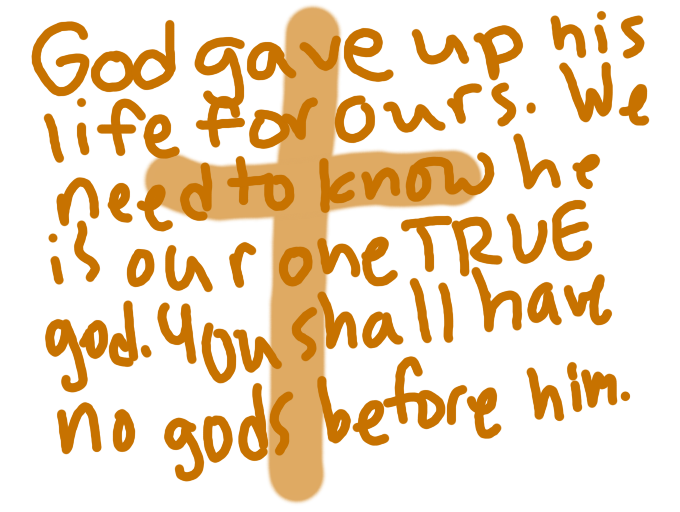 God gave up his
life for ours. We
need to know he
is our one TRUE
god. You shall have
no gods before him.